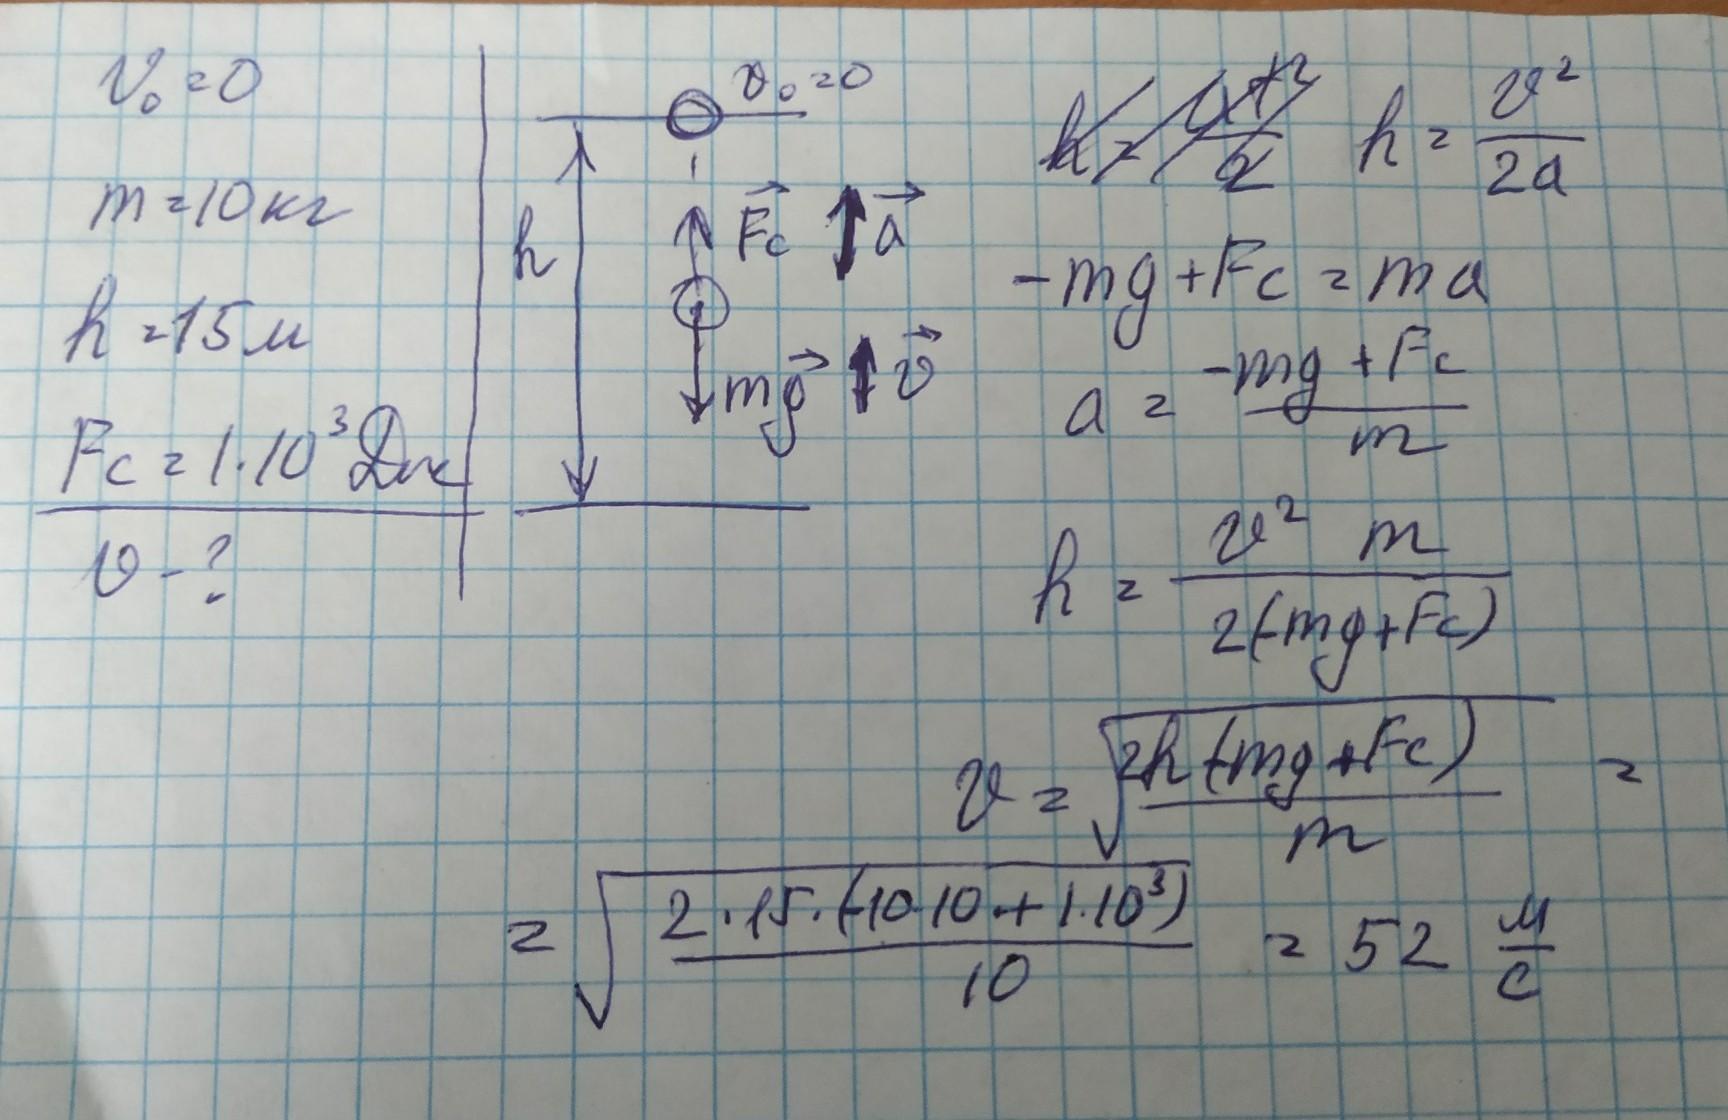 v₀ = 0
m = 10 кг
h = 15 м
Fc = 1·10³ Дж
v - ?
v₀ = 0
h
F⃗c a⃗
mg⃗ v⃗
h = v²/2a
-mg + Fc = ma
a = (-mg + Fc)/m
h = v² m/2(-mg + Fc)
v = √(2h(-mg + Fc)/m) =
= √(2·15·(-10·10 + 1·10³)/10) = 52 м/с